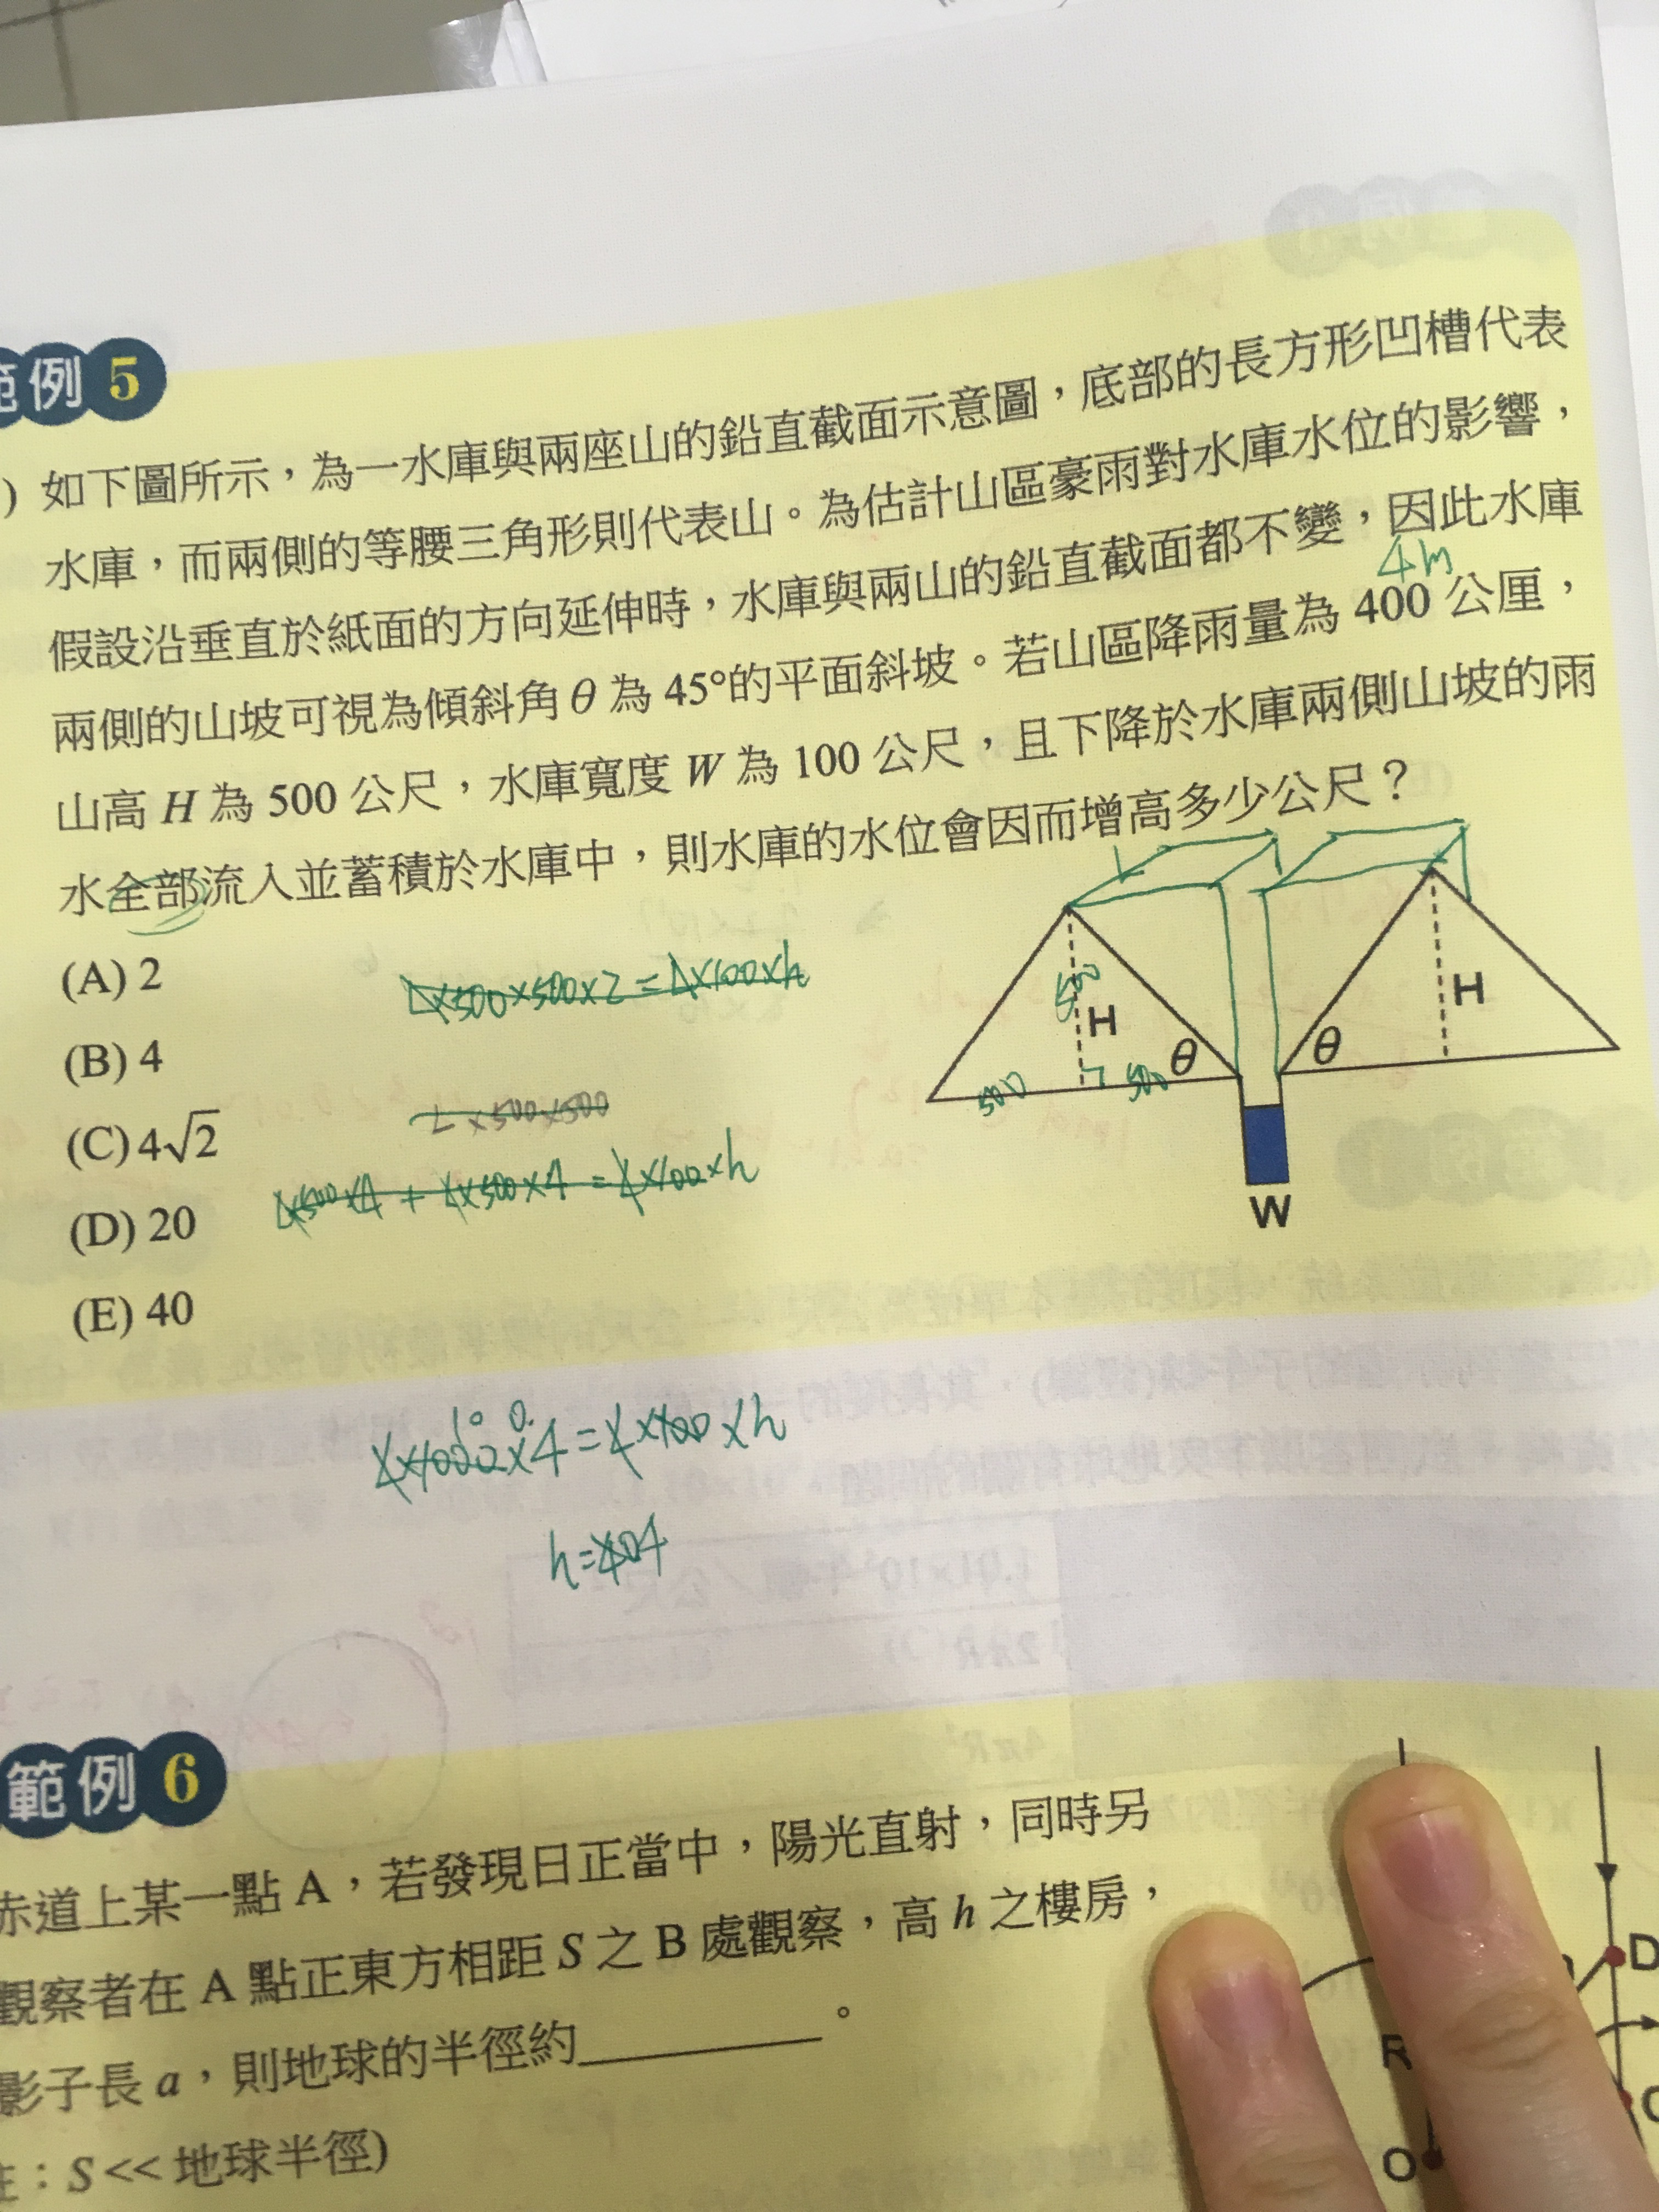 範例 5
) 如下圖所示，為一水庫與兩座山的鉛直截面示意圖，底部的長方形凹槽代表
水庫，而兩側的等腰三角形則代表山。為估計山區豪雨對水庫水位的影響，
假設沿垂直於紙面的方向延伸時，水庫與兩山的鉛直截面都不變，因此水庫
4m
兩側的山坡可視為傾斜角 θ 為 45°的平面斜坡。若山區降雨量為 400 公厘，
山高 H 為 500 公尺，水庫寬度 W 為 100 公尺，且下降於水庫兩側山坡的雨
水全部流入並蓄積於水庫中，則水庫的水位會因而增高多少公尺？
(A) 2
(B) 4
(C) 4√2
(D) 20
(E) 40
500
H
θ
500
500
θ
H
W
h=404
範例 6
赤道上某一點 A，若發現日正當中，陽光直射，同時另
觀察者在 A 點正東方相距 S 之 B 處觀察，高 h 之樓房，
影子長 a，則地球的半徑約________。
：S << 地球半徑)
D
R
O